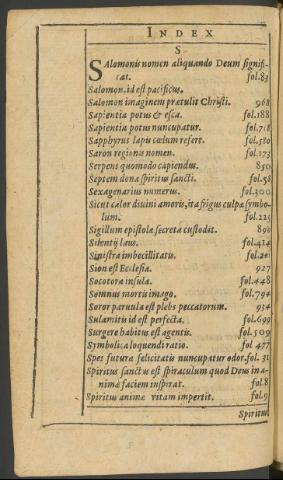 INDEX
S
SAlomonis nomen aliquando Deum signifi-
cat. fol.83
Salomon, id est pacificus.
Salomon imaginem prætulit Christi. 968
Sapientia potus & esca. fol.188
Sapientia potus nuncupatur. fol.718
Sapphyrus lapis cœlum refert. fol.580
Saron regionis nomen. fol.173
Serpens quomodo capiendus. 850
Septem dona spiritus sancti. fol.58
Sexagenarius numerus. fol.300
Sicut calor divini amoris, ita frigus culpæ symbo-
lum. fol.225
Sigillum epistolæ secreta custodit. 890
Silentij laus. fol.414
Sinistra imbecillitatis. fol.
Sion est Ecclesia. 927
Socotora insula. fol.448
Somnus mortis imago. fol.794
Soror parvula est plebs peccatorum. 954
Sulamitis id est perfecta. fol.699
Surgere habitus est agentis. fol.509
Symbolica loquendi ratio. fol 477
Spes futuræ felicitatis nuncupatur odor. fol. 31
Spiritus sanctus est spiraculum quod Deus in a-
nimæ faciem inspirat. fol.8
Spiritus animæ vitam impertit. fol.9
Spiritus